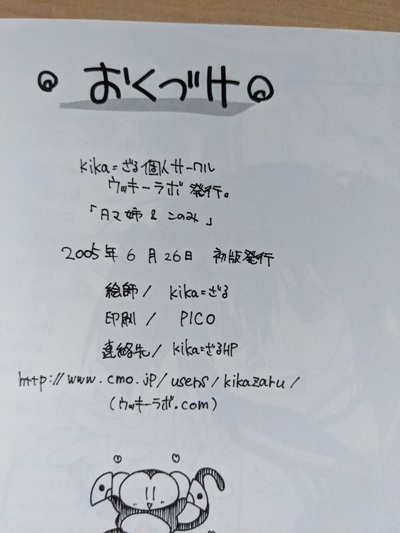 おくづけ
kika=ざる個人サークル
ウッキーラボ発行。
「タマ姉 & このみ」
2005年 6月26日 初版発行
絵師/ kika=ざる
印刷/ PICO
連絡先/ kika=ざるHP
http://www.cmo.jp/users/kikazaru/
(ウッキーラボ.com)